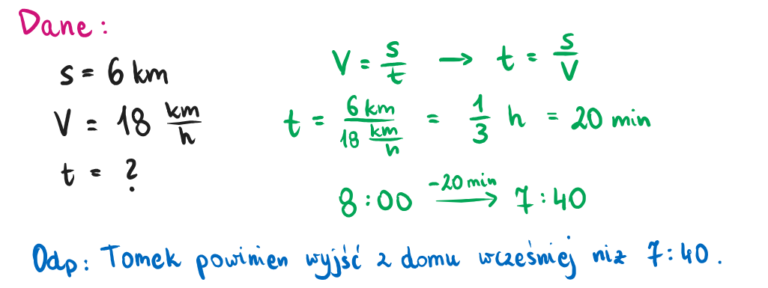 Dane:
s = 6 km
V = 18 km/h
t = ?
V = s/t → t = s/V
t = 6 km / 18 km/h = 1/3 h = 20 min
8:00 -20 min → 7:40
Odp: Tomek powinien wyjść z domu wcześniej niż 7:40.